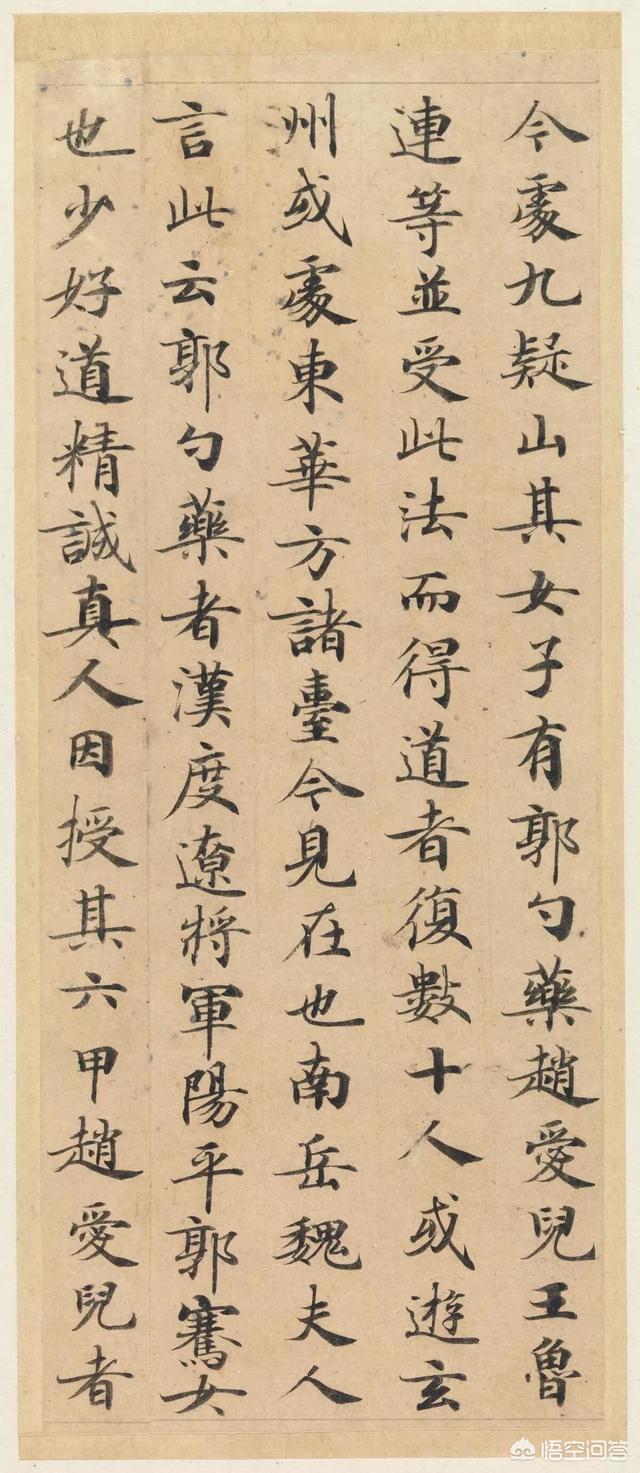 令處九疑山其女子有郭勺藥趙愛兒王魯
連等並受此法而得道者復數十人或遊玄
洲或處東華方諸臺今見在也南岳魏夫人
言此云郭勺藥者漢度遼將軍陽平郭騫女
也少好道精誠真人因授其六甲趙愛兒者
悟空问答